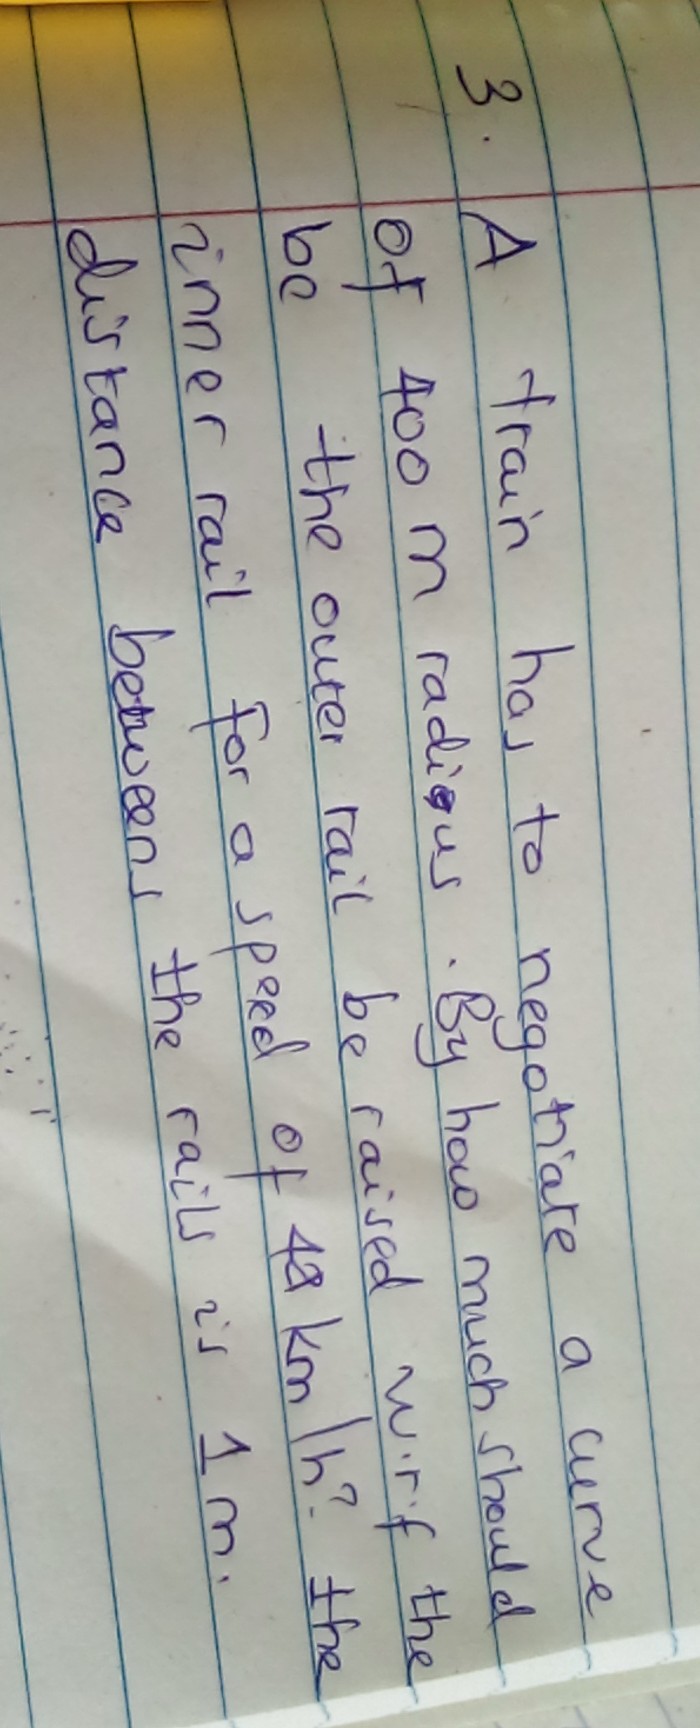 3. A train has to negotiate a curve
of 400 m radius. By how much should
be the outer rail be raised w.r.f the
inner rail for a speed of 48 km/h? the
distance betweens the rails is 1 m.